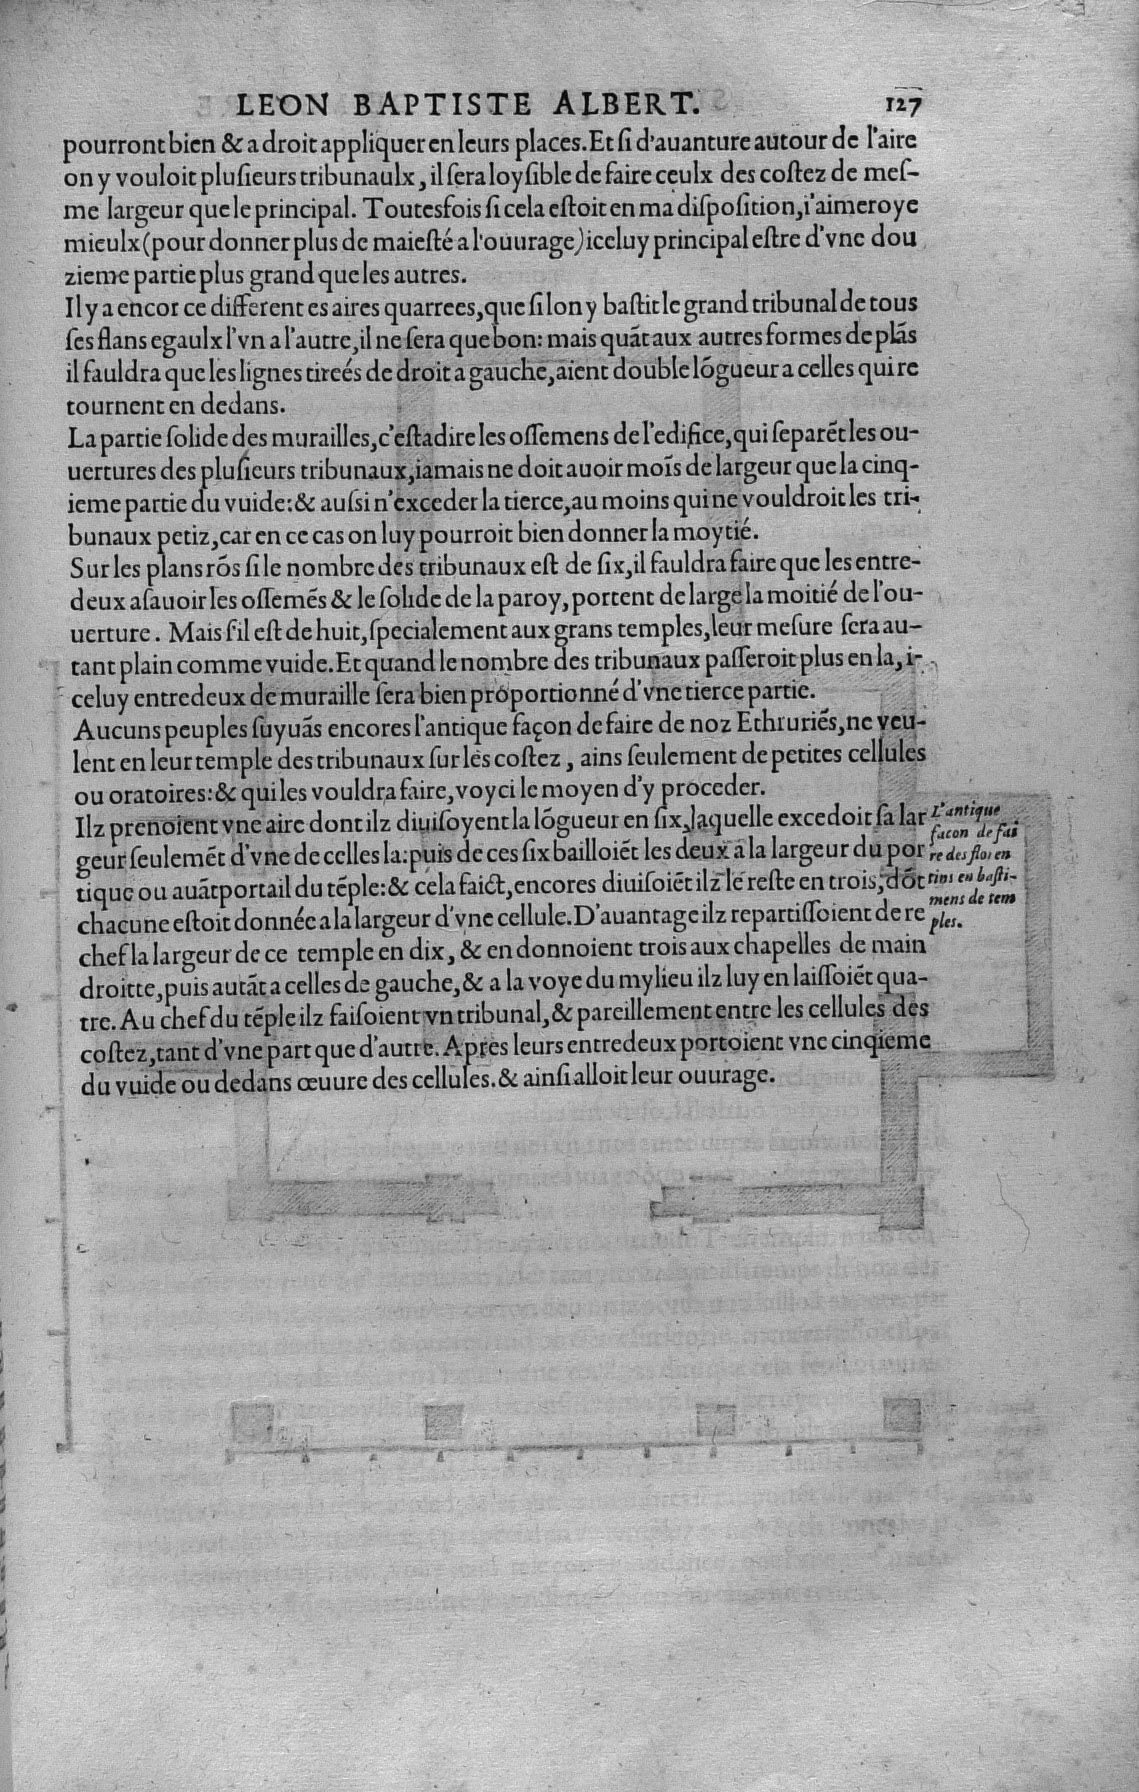 LEON BAPTISTE ALBERT. 127
pourront bien & a droit appliquer en leurs places. Et si d'auanture autour de l'aire
on y vouloit plusieurs tribunaulx, il sera loysible de faire ceulx des costez de mes-
me largeur que le principal. Toutesfois si cela estoit en ma disposition, i'aimeroye
mieulx (pour donner plus de maiesté a l'ouurage) iceluy principal estre d'vne dou
zieme partie plus grand que les autres.
Il y a encor ce different es aires quarrees, que si lon y bastit le grand tribunal de tous
ses flans egaulx l'vn a l'autre, il ne sera que bon: mais quãt aux autres formes de plãs
il fauldra que les lignes tireés de droit a gauche, aient double lõgueur a celles qui re
tournent en dedans.
La partie solide des murailles, c'estadire les ossemens de l'edifice, qui separẽt les ou-
uertures des plusieurs tribunaux, iamais ne doit auoir moĩs de largeur que la cinq-
ieme partie du vuide: & aussi n'exceder la tierce, au moins qui ne vouldroit les tri-
bunaux petiz, car en ce cas on luy pourroit bien donner la moytié.
Sur les plans rõs si le nombre des tribunaux est de six, il fauldra faire que les entre-
deux asauoir les ossemẽs & le solide de la paroy, portent de large la moitié de l'ou-
uerture. Mais s'il est de huit, specialement aux grans temples, leur mesure sera au-
tant plain comme vuide. Et quand le nombre des tribunaux passeroit plus en la, i-
celuy entredeux de muraille sera bien proportionné d'vne tierce partie.
Aucuns peuples suyuãs encores l'antique façon de faire de noz Ethruriẽs, ne veu-
lent en leur temple des tribunaux sur les costez, ains seulement de petites cellules
ou oratoires: & qui les vouldra faire, voyci le moyen d'y proceder.
Ilz prenoient vne aire dont ilz diuisoyent la lõgueur en six, laquelle excedoit sa lar
geur seulemẽt d'vne de celles la: puis de ces six bailloiẽt les deux a la largeur du por
tique ou auãtportail du tẽple: & cela faict, encores diuisoiẽt ilz le reste en trois, dõt
chacune estoit donnée a la largeur d'vne cellule. D'auantage ilz repartissoient de re
chef la largeur de ce temple en dix, & en donnoient trois aux chapelles de main
droitte, puis autãt a celles de gauche, & a la voye du mylieu ilz luy en laissoiẽt qua-
tre. Au chef du tẽple ilz faisoient vn tribunal, & pareillement entre les cellules des
costez, tant d'vne part que d'autre. Apres leurs entredeux portoient vne cinqieme
du vuide ou dedans œuure des cellules. & ainsi alloit leur ouurage.
L'antique
facon de fai
re des floren
tins en basti-
mens de tem
ples.